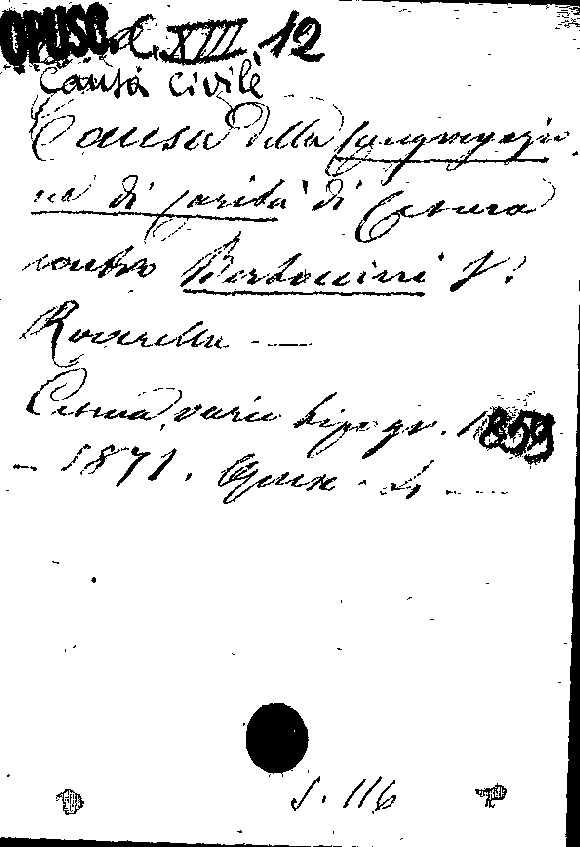 OPUSC. d. XIII 12
Causa civile
Causa della Congregazio
ne di carità di Cesena
contro Bertoccini
Roverella —
Cesena, varie tipogr. 1859
- 1871. Opusc.
S. 116